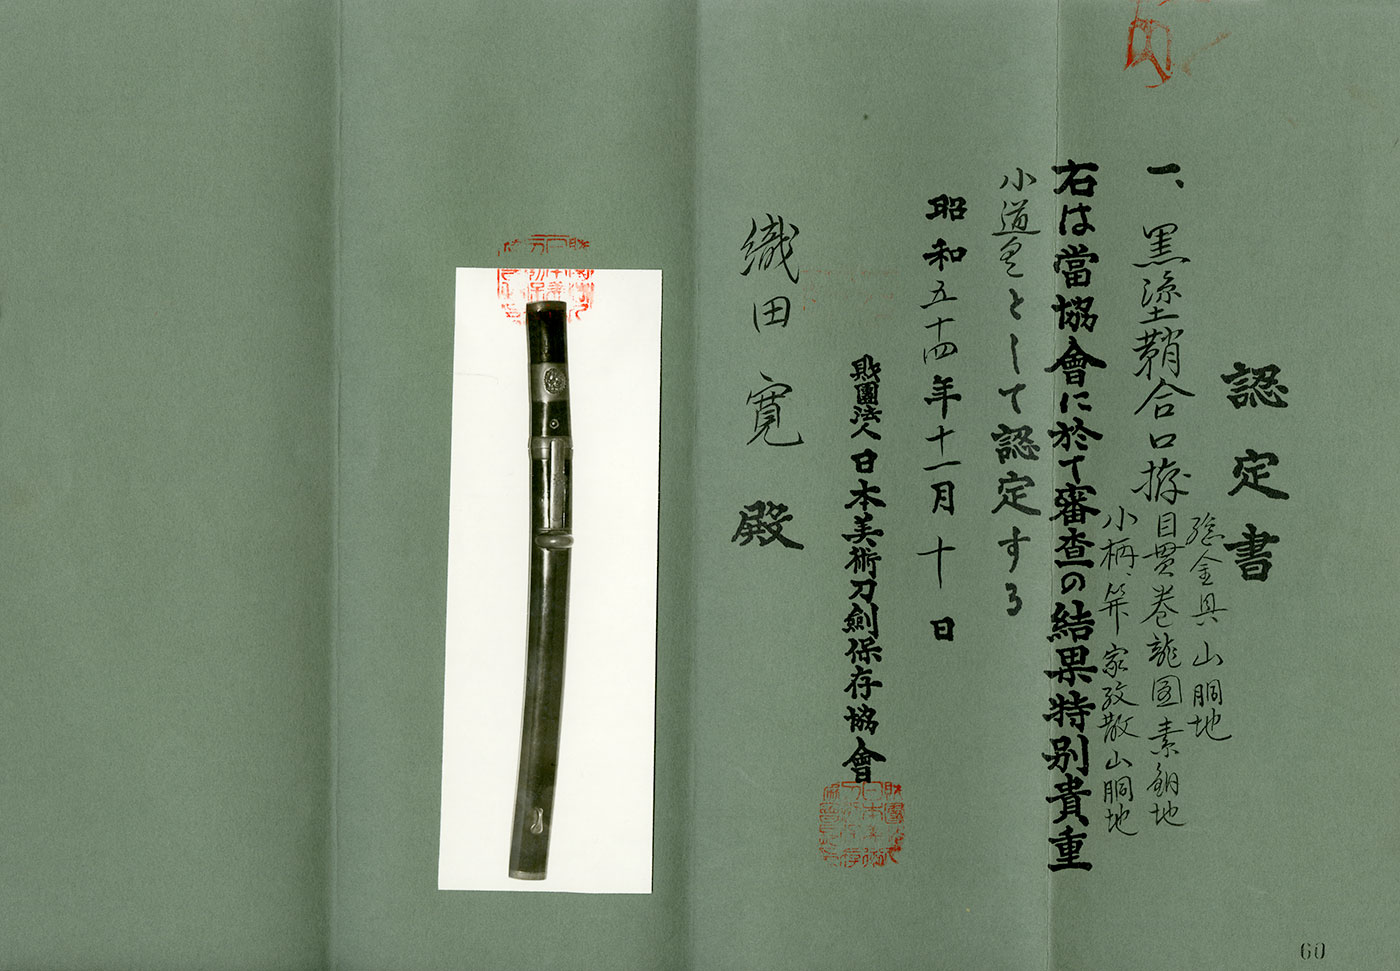 認定書
一、黒塗鞘合口拵
総金具山胴地
目貫巻龍図素銅地
小柄、笄家紋散山胴地
右は當協會に於て審査の結果特別貴重
小道具として認定する
昭和五十四年十一月十日
財團法人日本美術刀劍保存協會
織田寛殿
60